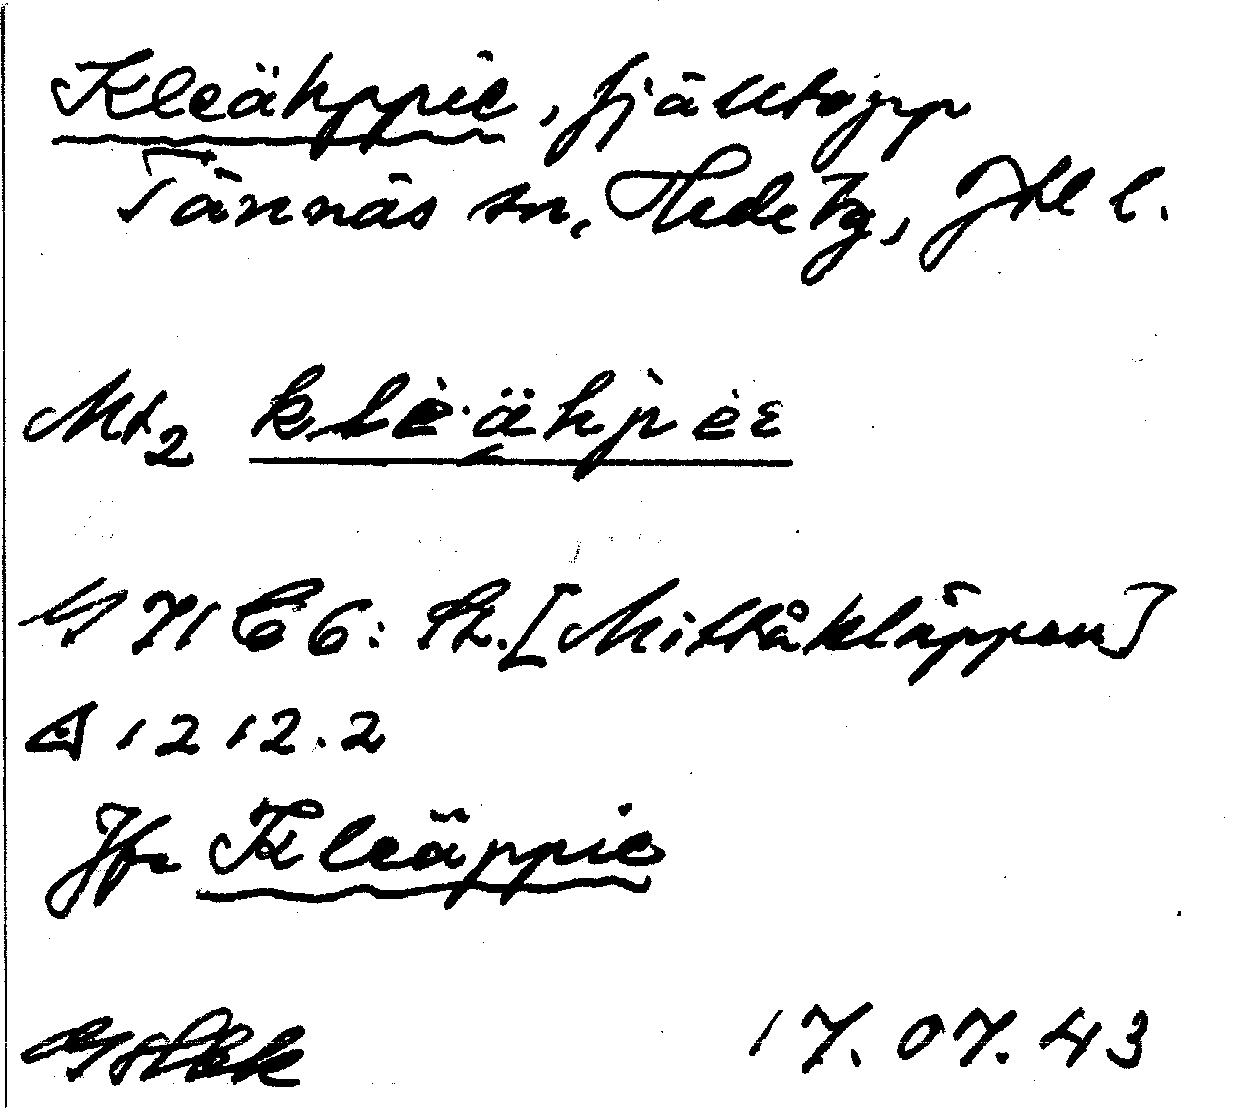 Kleähppie, fjälltopp
Tännäs sn, Hede tg, Jtl l.
Mt2 kleähpee
G 71 C6: St. [Mittåkläppen]
A 1212.2
Jfr Kleäppie
17.07.43